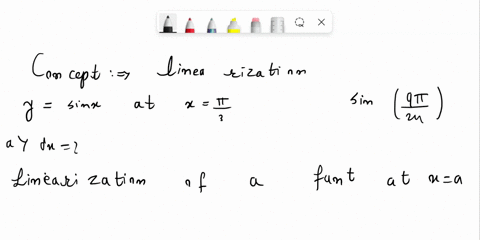 Concept :⇒ linearization
y = sinx at x = π/3 sin (9π/24)
a) dx = ?
Linearization of a funt at x=a